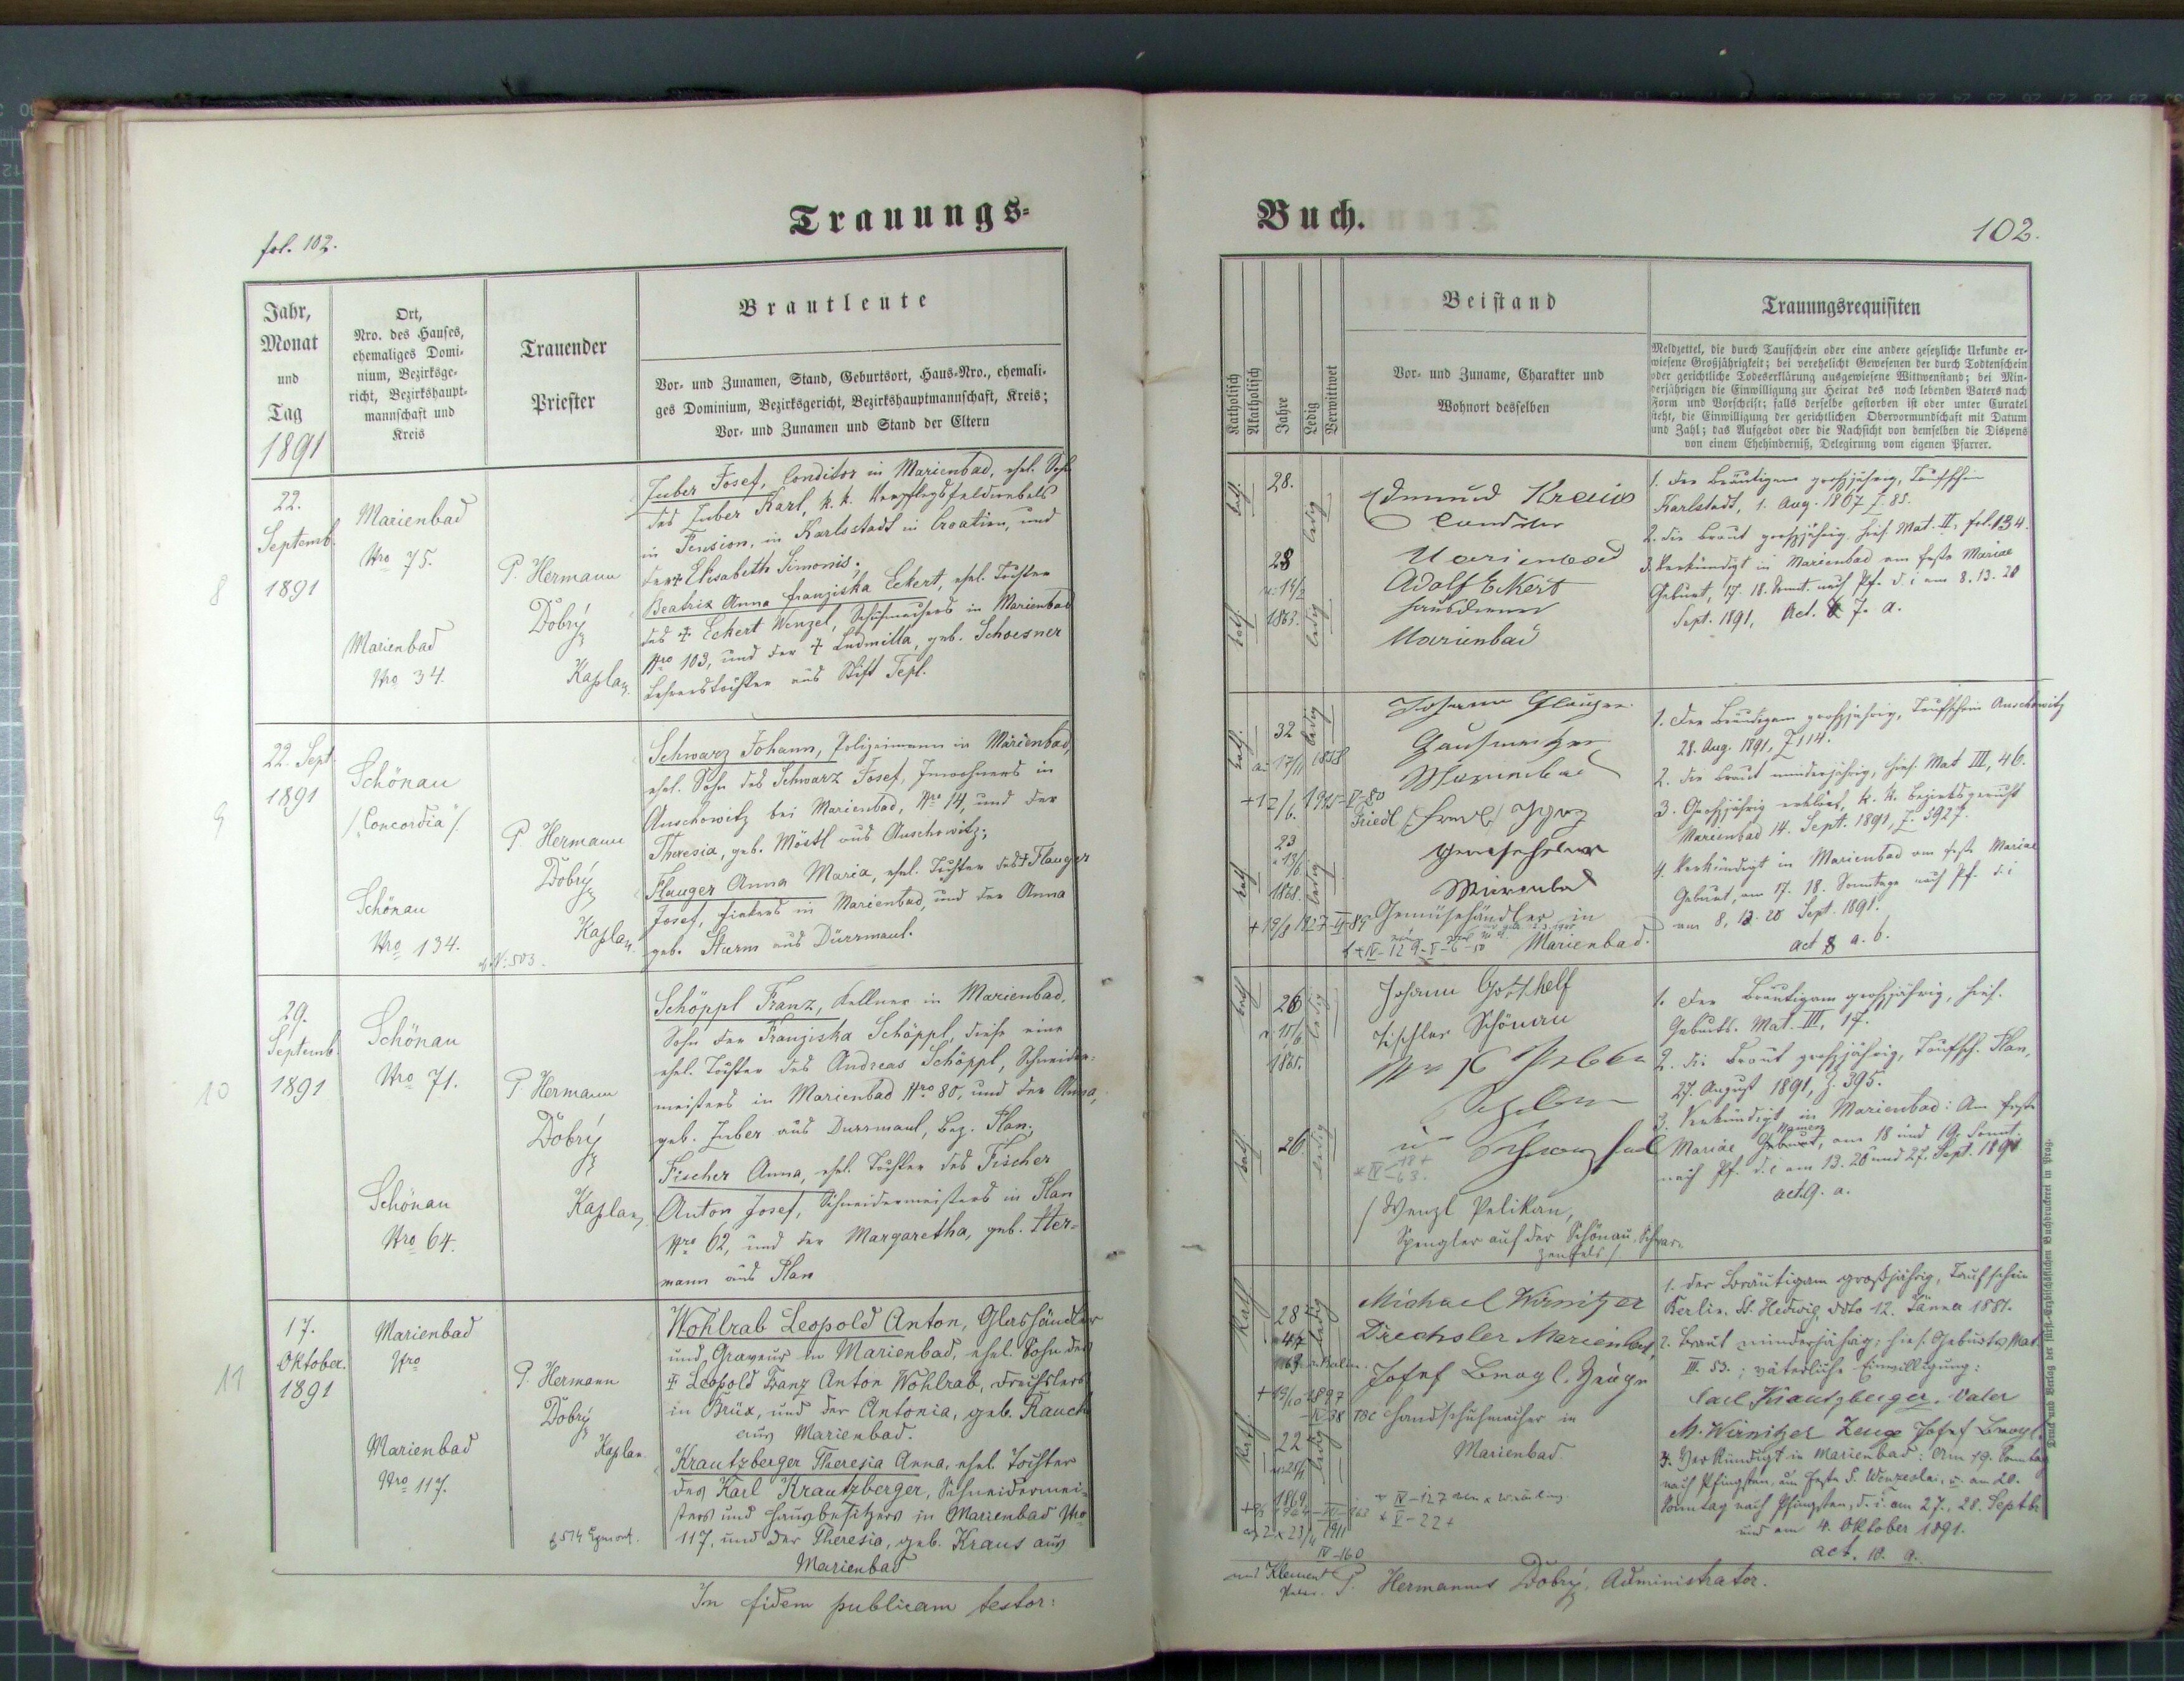 Trauungs=
fol. 102.
Jahr,
Monat
und
Tag
1891
Ort,
Nro. des Hauses,
ehemaliges Domi-
nium, Bezirksge-
richt, Bezirkshaupt-
mannschaft und
Kreis
Trauender
Priester
Brautleute
Vor- und Zunamen, Stand, Geburtsort, Haus-Nro., ehemali-
ges Dominium, Bezirksgericht, Bezirkshauptmannschaft, Kreis;
Vor- und Zunamen und Stand der Eltern
8
22.
Septemb.
1891
Marienbad
Nro 75.
Marienbad
Nro 34.
P. Hermann
Dobrý
Kaplan.
Juber Josef, Conditor in Marienbad, ehel. Sohn
des Juber Karl, k. k. Verpflegsfeldwebels
in Pension, in Karlsstadt in Croatien, und
der + Elisabeth Simonis;
Beatrix Anna Franziska Eckert, ehel. Tochter
des + Eckert Wenzel, Schuhmachers in Marienbad
Nro 103, und der + Ludmilla, geb. Schoesner
Lehrerstochter aus Stift Tepl.
9
22. Sept.
1891
Schönau
/"Concordia"/
Schönau
Nro 134.
P. Hermann
Dobrý
Kaplan
Schwarz Johann, Polizeimann in Marienbad,
ehel. Sohn des Schwarz Josef, Inwohners in
Auschowitz bei Marienbad, Nro 14, und der
Theresia, geb. Möstl aus Auschowitz;
Flauger Anna Maria, ehel. Tochter des + Flauger
Josef, Fiakers in Marienbad, und der Anna
geb. Sturm aus Dürrmaul.
10
29.
Septemb.
1891
Schönau
Nro 71.
Schönau
Nro 64.
P Hermann
Dobrý
Kaplan
Schöppl Franz, Kellner in Marienbad,
Sohn der Franziska Schöppl, diese eine
ehel. Tochter des Andreas Schöppl, Schneider-
meisters in Marienbad Nro 80, und der Anna,
geb. Juber aus Dürrmaul, Bez. Plan;
Fischer Anna, ehel. Tochter des Fischer
Anton Josef, Schneidermeisters in Plan
Nro 62, und der Margaretha, geb. Her-
mann aus Plan
11
17.
Oktober.
1891
Marienbad
Nro
Marienbad
Nro 117.
P. Hermann
Dobrý
Kaplan.
Wohlrab Leopold Anton, Glashändler
und Graveur in Marienbad, ehel. Sohn des
+ Leopold Franz Anton Wohlrab, Drechslers
in Brüx, und der Antonia, geb. Rauch
aus Marienbad.
Krautzberger Theresia Anna, ehel. Tochter
des Karl Krautzberger, Schneidermei-
sters und Hausbesitzers in Marienbad Nro
117, und der Theresia, geb. Kraus aus
Marienbad
In fidem publicam testor:
Buch.
102.
Katholisch
Akatholisch
Jahre
Ledig
Verwitwet
Beistand
Vor- und Zuname, Charakter und
Wohnort desselben
Trauungsrequisiten
Meldzettel, die durch Taufschein oder eine andere gesetzliche Urkunde er-
wiesene Großjährigkeit; bei verehelicht Gewesenen der durch Todtenschein
oder gerichtliche Todeserklärung ausgewiesene Wittwenstand; bei Min-
derjährigen die Einwilligung zur Heirat des noch lebenden Vaters nach
Form und Vorschrift; falls derselbe gestorben ist oder unter Curatel
steht, die Einwilligung der gerichtlichen Obervormundschaft mit Datum
und Zahl; das Aufgebot oder die Nachsicht von demselben die Dispens
von einem Ehehinderniß, Delegirung vom eigenen Pfarrer.
kath.
28.
ledig
28
1863.
kath.
ledig
Edmund Kreuss
Conditor
Marienbad
Adolf Eckert
Hausdiener
Marienbad
1. Der Bräutigam großjährig, Taufschein
Karlstadt, 1. Aug. 1867 Z. 85.
2. Die Braut großjährig, hies. Mat. II, fol. 134.
3. Verkündigt in Marienbad am Feste Mariae
Geburt, 17. 18. Sonnt. nach Pf. d. i am 8. 13. 20
Sept. 1891, Act. 7. a.
kath.
32
ledig
17/11 1858
23
ledig
1868.
Johann Flauger
Marienbad
Friedl
Marienbad
Gemüsehändler in
Marienbad.
1. Der Bräutigam großjährig, Taufschein Auschowitz
28. Aug. 1891, Z 114.
2. Die Braut minderjährig, hies. Mat III, 46.
3. Großjährig erklärt, k. k. Bezirksgericht
Marienbad 14. Sept. 1891, Z. 5927.
4. Verkündigt in Marienbad am Feste Mariae
Geburt, am 17. 18. Sonntage nach Pf. d. i
am 8, 13. 20 Sept. 1891.
act 8 a. b.
kath
26
ledig
1865.
kath
26.
ledig
Johann Gotthelf
Tischler Schönau
/Wenzl Pelikan,
Spengler auf der Schönau. Schwar-
zenfels/
1. Der Bräutigam großjährig, hies.
Geburts. Mat. III, 17.
2. Die Braut großjährig, Taufsch. Plan,
27. August 1891, Z. 395.
3. Verkündigt in Marienbad: Am Feste
Mariae Namen, am 18 und 19. Sonnt.
nach Pf. d. i am 13. 20 und 27. Sept. 1891
act. 9. a.
Kath
28
ledig
Kath.
22
ledig
1869
IV-160
Michael Wirnitzer
Drechsler Marienbad,
Handschuhmacher in
Marienbad
1. Der Bräutigam großjährig, Taufschein
Berlin, St. Hedwig, ddto 12. Jänner 1887.
2. Braut minderjährig, hies. Geburts Mat.
III. 53.; väterliche Einwilligung:
Karl Krautzberger. Vater
M. Wirnitzer Zeuge Josef
3. Verkündigt in Marienbad: Am 19. Sonntag
nach Pfingsten, am Feste S. Wenzeslai, u. am 20.
Sonntag nach Pfingsten, d. i. am 27., 28. Septb.
und am 4. Oktober 1891.
act. 10. a.
P. Hermannus Dobrý, Administrator.
Druck und Verlag der fürst-erzbischöflichen Buchdruckerei in Prag.